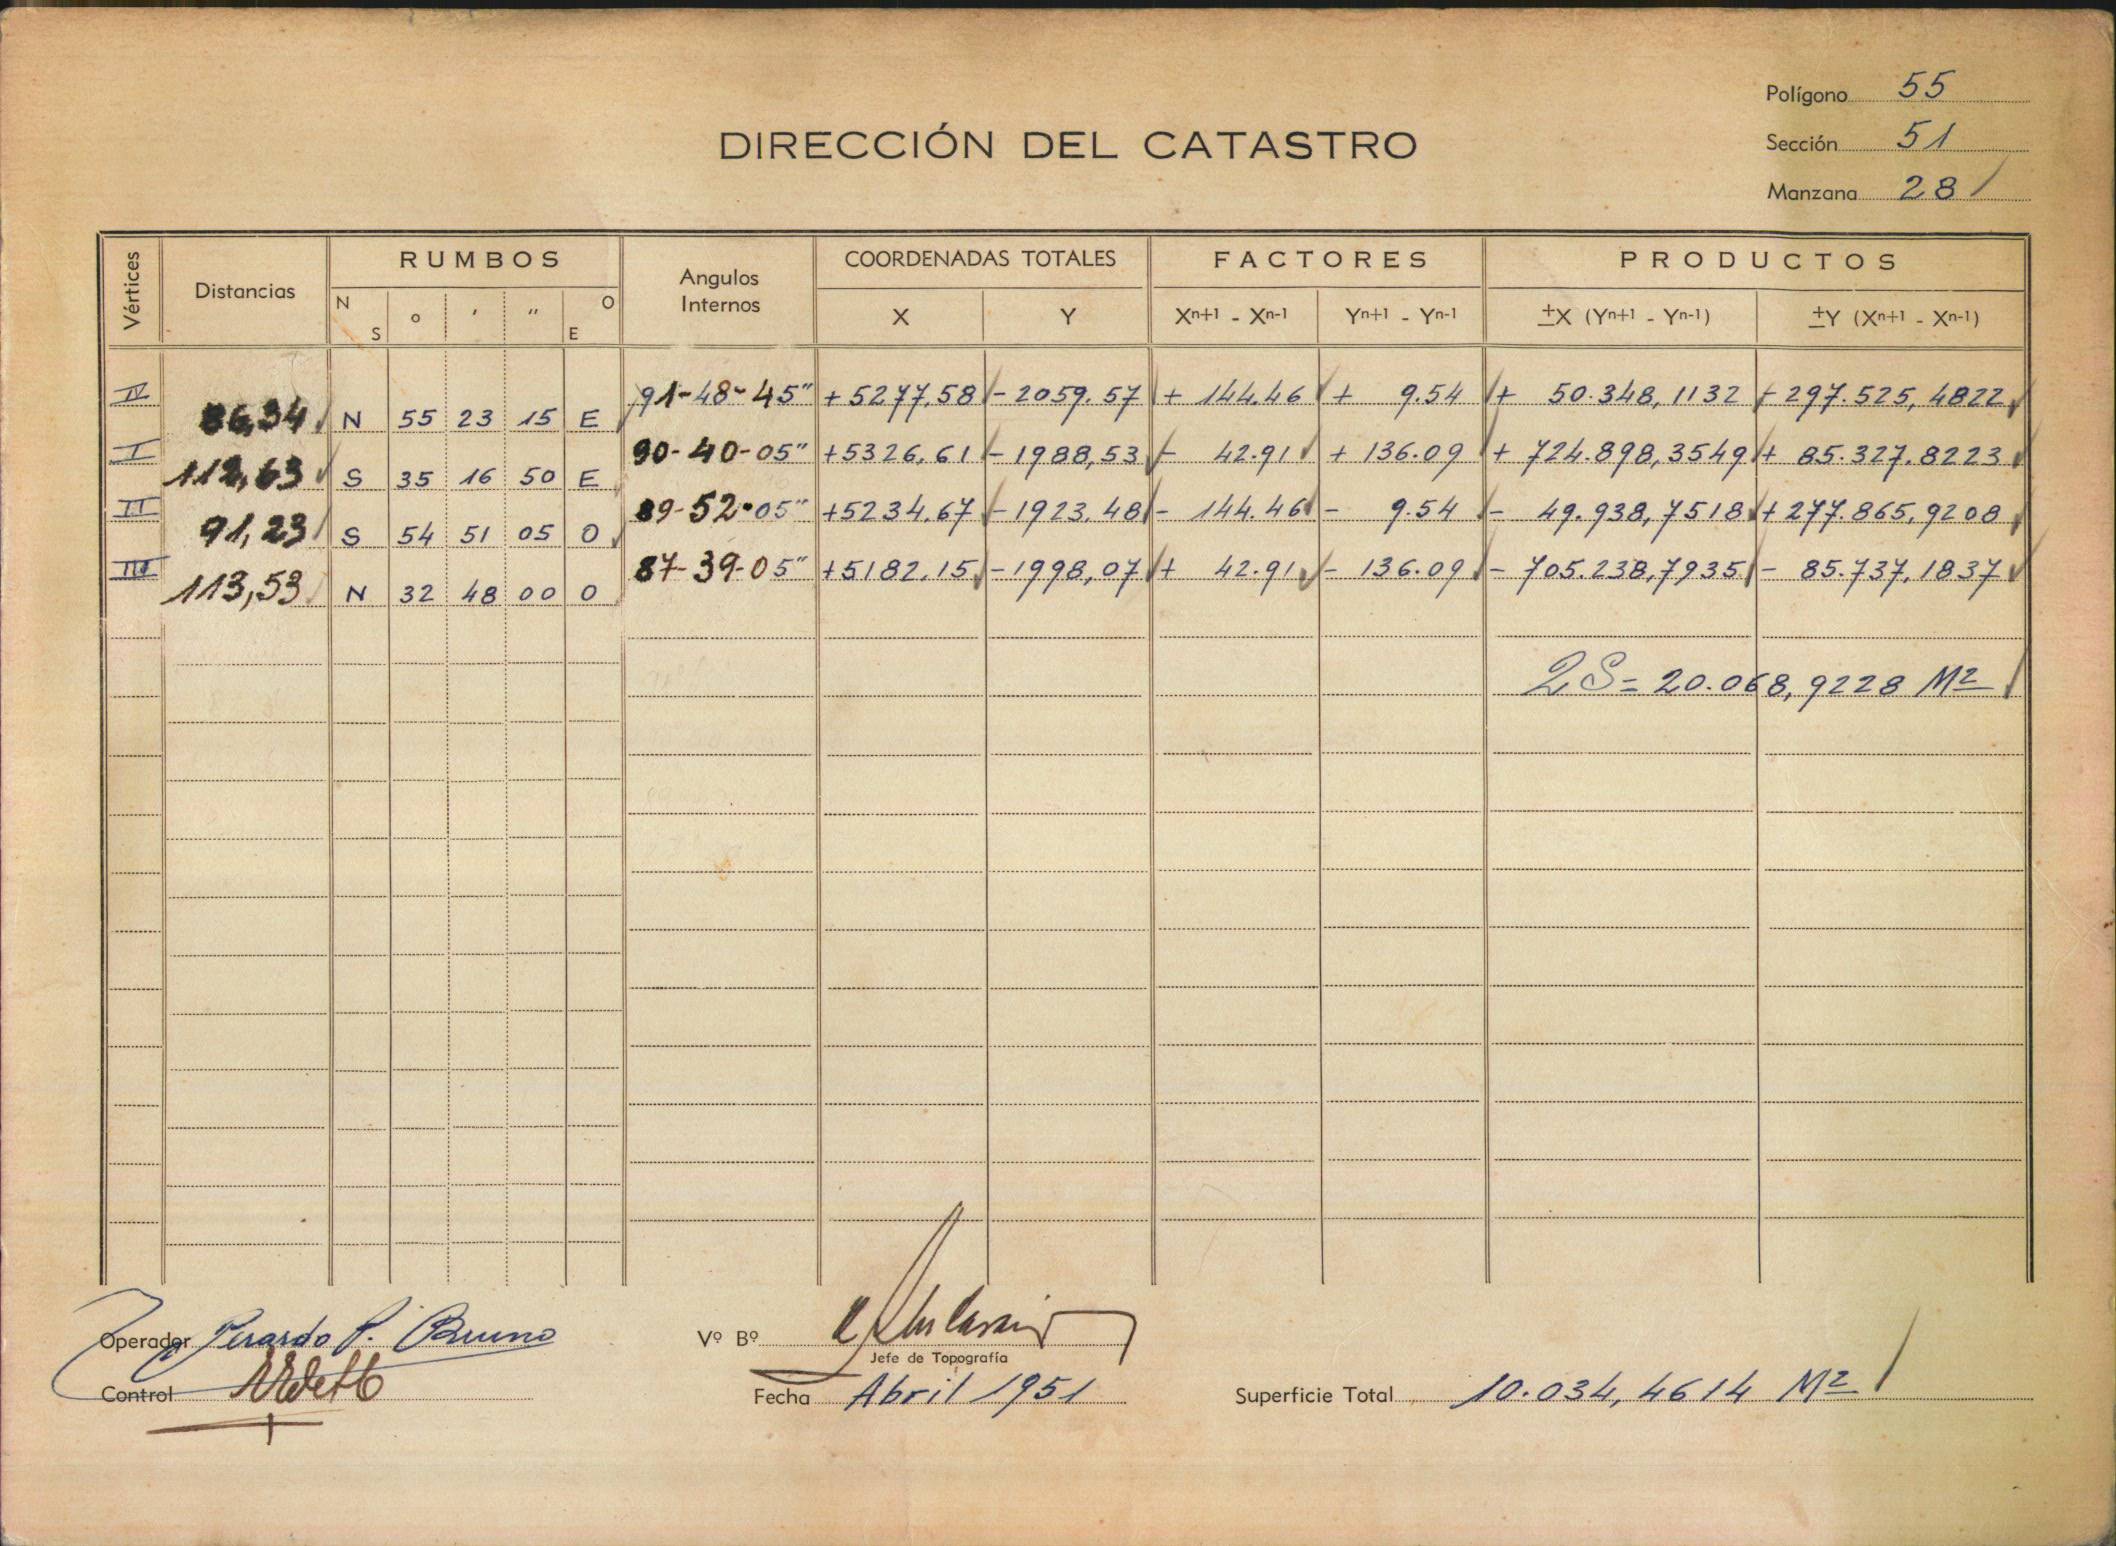 Polígono 55
DIRECCIÓN DEL CATASTRO
Sección 51
Manzana 28
Vértices Distancias RUMBOS Angulos Internos COORDENADAS TOTALES FACTORES PRODUCTOS
N S ° ' " O E X Y Xn+1 - Xn-1 Yn+1 - Yn-1 ±X (Yn+1 - Yn-1) ±Y (Xn+1 - Xn-1)
IV 91-48-45" +5277,58 -2059.57 + 144.46 + 9.54 + 50.348,1132 -297.525,4822
86,34 N 55 23 15 E
I 90-40-05" +5326,61 -1988,53 - 42.91 + 136.09 + 724.898,3549 + 85.327.8223
112,63 S 35 16 50 E
II 89-52-05" +5234.67 -1923.48 - 144.46 - 9.54 - 49.938,7518 +277.865,9208
91,23 S 54 51 05 O
III 87-39-05" +5182.15 -1998,07 + 42.91 - 136.09 - 705.238,7935 - 85.737,1837
113,53 N 32 48 00 O
2S = 20.068,9228 M2
Operador Gerardo P. Bruno Vº Bº
Jefe de Topografía
Control Fecha Abril 1951 Superficie Total 10.034,4614 M2